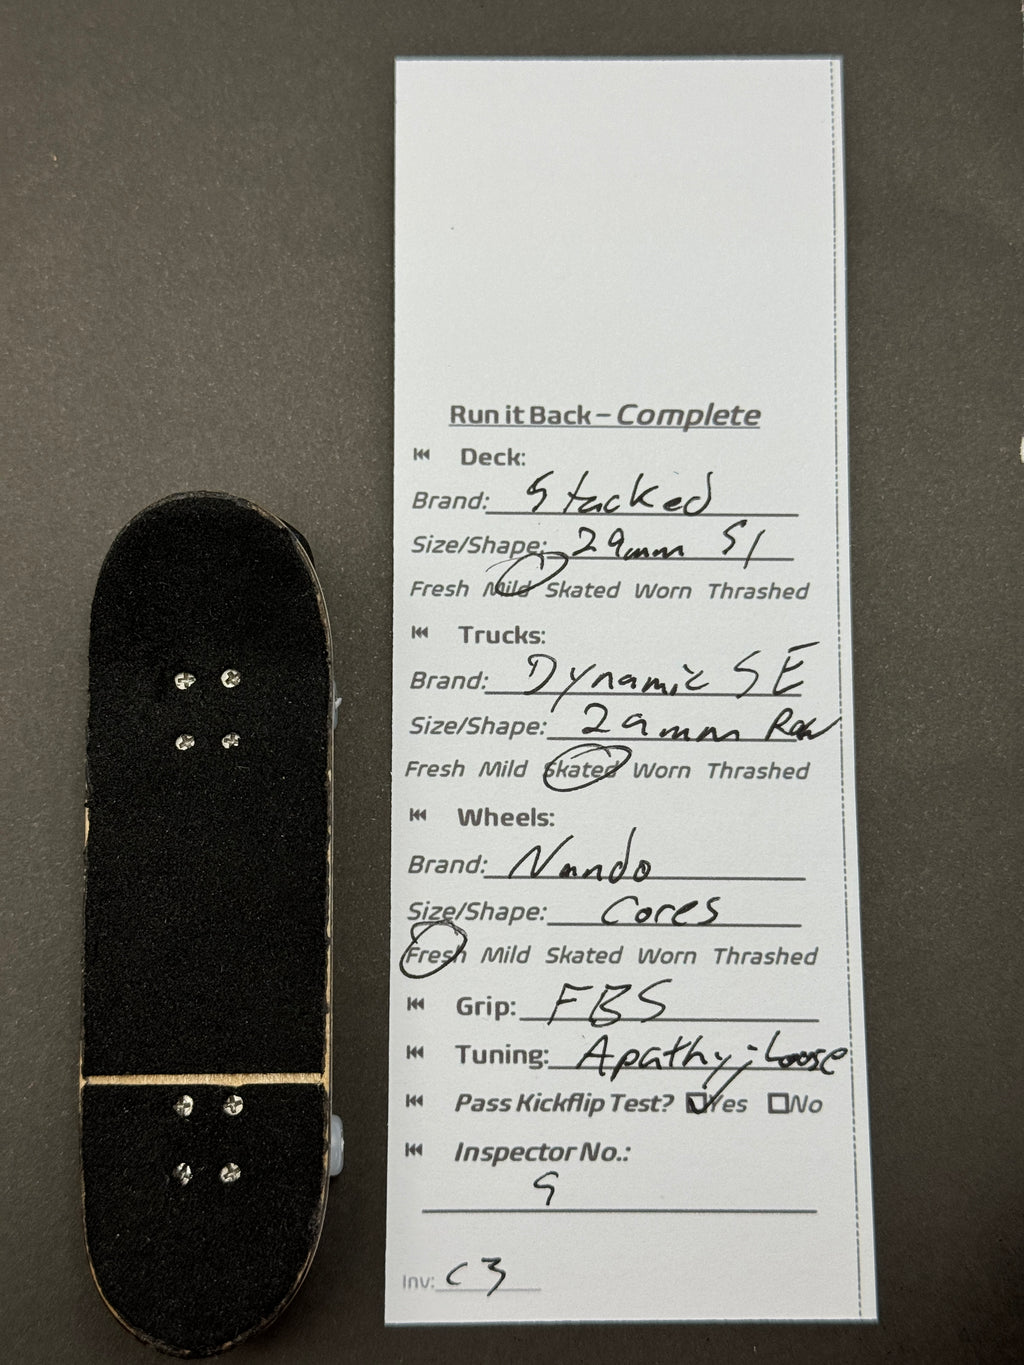 Run it Back – Complete
Deck:
Brand: Stacked
Size/Shape: 29mm S1
Fresh Mild Skated Worn Thrashed
Trucks:
Brand: Dynamic SE
Size/Shape: 29mm Raw
Fresh Mild Skated Worn Thrashed
Wheels:
Brand: Nando
Size/Shape: Cores
Fresh Mild Skated Worn Thrashed
Grip: FBS
Tuning: Apathy; Loose
Pass Kickflip Test? Yes No
Inspector No.:
9
Inv: C3